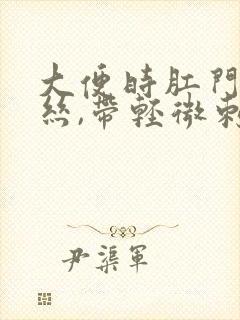 大便時肛門
絲,帶輕微刺
尹渠軍